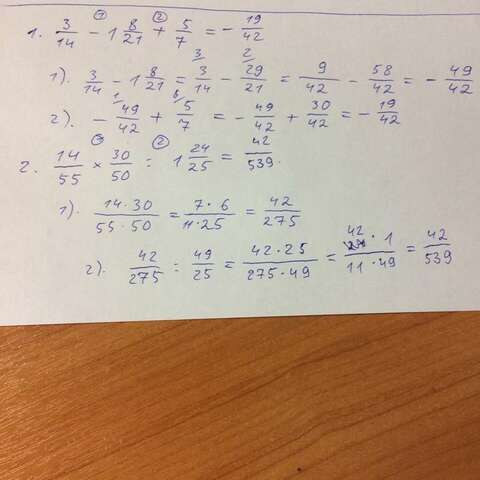 1. 3/14 ① − 1 8/21 ② + 5/7 = − 19/42
1). 3/14 − 1 8/21 = 3/14 ³⁄ − 29/21 ²⁄ = 9/42 − 58/42 = − 49/42
2). − 49/42 ¹⁄ + 5/7 ⁶⁄ = − 49/42 + 30/42 = − 19/42
2. 14/55 ① × 30/50 ② : 1 24/25 = 42/539.
1). 14 · 30 / 55 · 50 = 7 · 6 / 11 · 25 = 42/275
2). 42/275 : 49/25 = 42 · 25 / 275 · 49 = 42 · 1 / 11 · 49 = 42/539